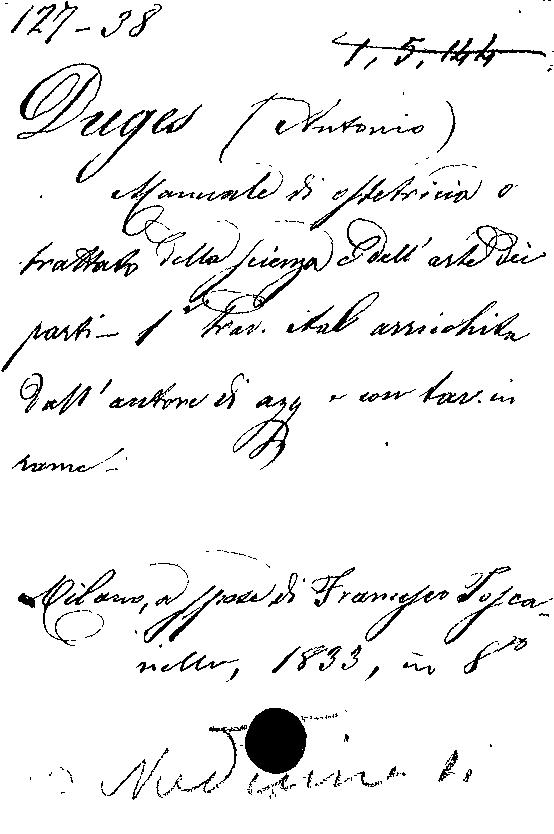 127-38
1, 5, 144
Duges (Antonio)
Manuale di ostetricia o
trattato della scienza e dell'arte dei
parti - 1ª Trav. ital arricchita
dall'autore di agg e con tav. in
rame -
Milano, a spese di Francesco Tosca-
nelli, 1833, in 8º
Medicina